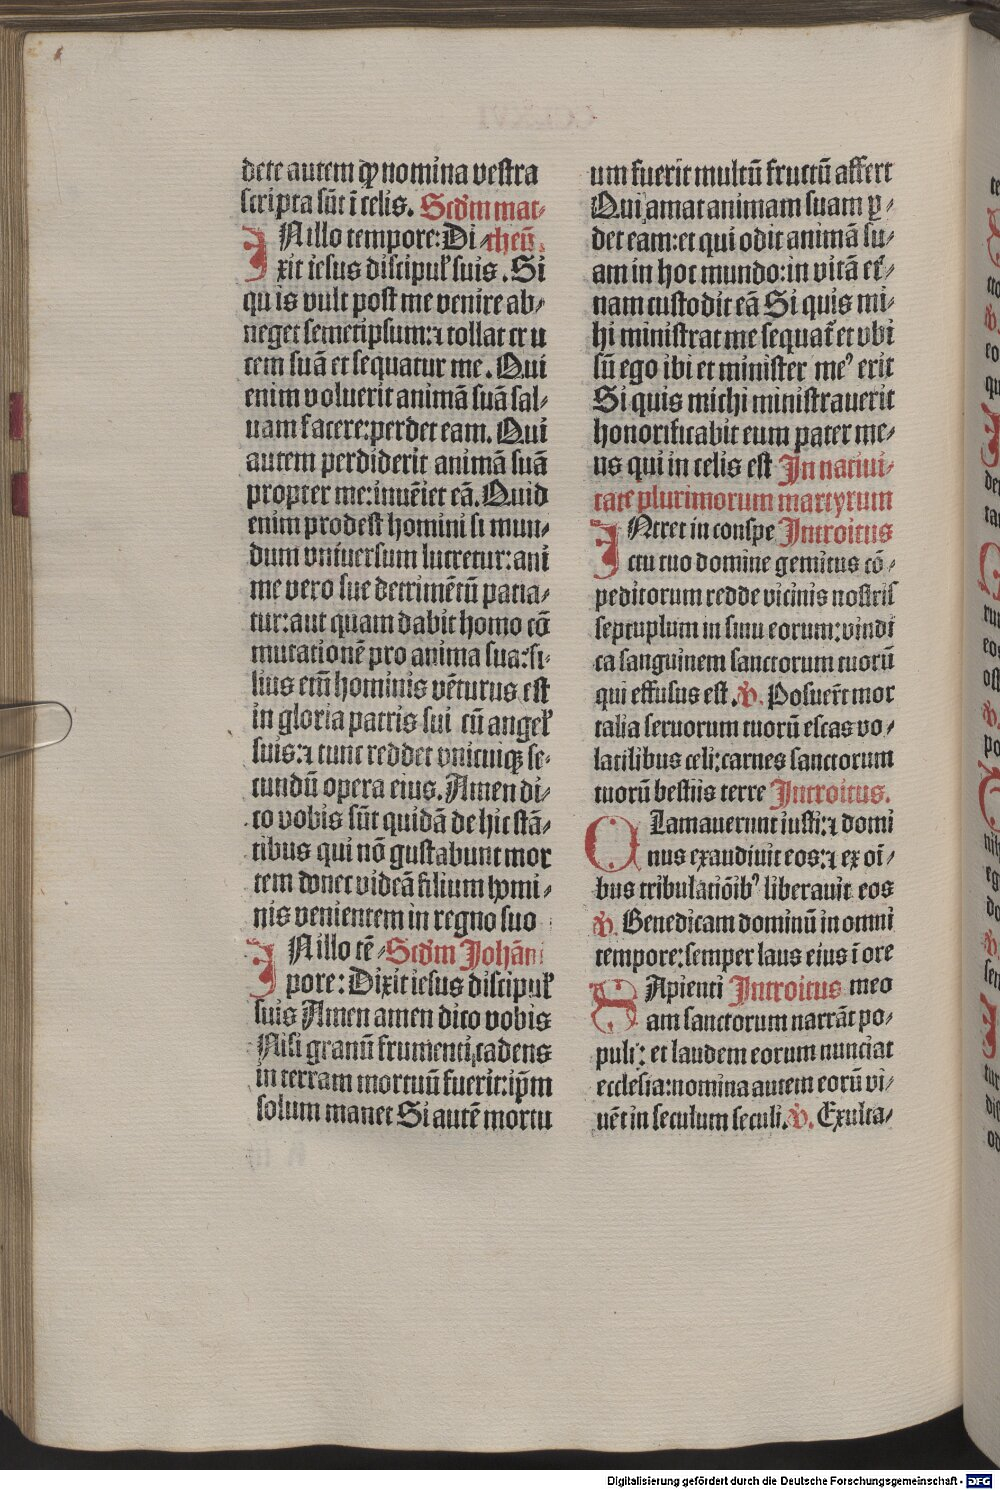 dete autem qͦ nomina vestra
scripta sūt ī celis. Scd̄m mat⸗
INillo tempore: Di⸗theū.
xit iesus discipulꝭ suis. Si
quis vult post me venire ab⸗
neget semetipsum: ⁊ tollat cru
cem suā et sequatur me. Qui
enim voluerit animā suā sal⸗
uam facere: perdet eam. Qui
autem perdiderit animā suā
propter me: inuēiet eā. Quid
enim prodest homini si mun⸗
dum vniuersum lucretur: ani
me vero sue detrimētū patia⸗
tur: aut quam dabit homo cō
mutationē pro anima sua: fi⸗
lius em̄ hominis vēturus est
in gloria patris sui cū angelꝭ
suis: ⁊ tunc reddet vnicuiqꝫ se⸗
cundū opera eius. Amen di⸗
co vobis sūt quidā de hic stā⸗
tibus qui nō gustabunt mor
tem donec videā filium homi⸗
nis venientem in regno suo
INillo tē⸗ Scd̄m Johān
pore: Dixit iesus discipulꝭ
suis Amen amen dico vobis
Nisi granū frumenti cadens
in terram mortuū fuerit: ip̄m
solum manet Si autē mortu
um fuerit multū fructū affert
Qui amat animam suam ꝑ⸗
det eam: et qui odit animā su⸗
am in hoc mundo: in vitā et̄⸗
nam custodit eā Si quis mi⸗
hi ministrat me sequat̄ et vbi
sū ego ibi et minister meꝰ erit
Si quis michi ministrauerit
honorificabit eum pater me⸗
us qui in celis est In natiui⸗
tate plurimorum martyrum
INtret in conspe Introitus
ctu tuo domine gemitus cō⸗
peditorum redde vicinis nostris
septuplum in sinu eorum: vindi
ca sanguinem sanctorum tuorū
qui effusus est. ℣. Posuer̄t mor
talia seruorum tuorū escas vo⸗
latilibus celi: carnes sanctorum
tuorū bestiis terre Introitus.
CLamauerunt iusti: ⁊ domi
nus exaudiuit eos: ⁊ ex oī⸗
bus tribulatiōibꝰ liberauit eos
℣. Benedicam dominū in omni
tempore: semper laus eius ī ore
SApienti Introitus meo
am sanctorum narrāt po⸗
puli: et laudem eorum nunciat
ecclesia: nomina autem eorū vi⸗
uēt in seculum seculi. ℣. Exulta⸗
Digitalisierung gefördert durch die Deutsche Forschungsgemeinschaft - DFG